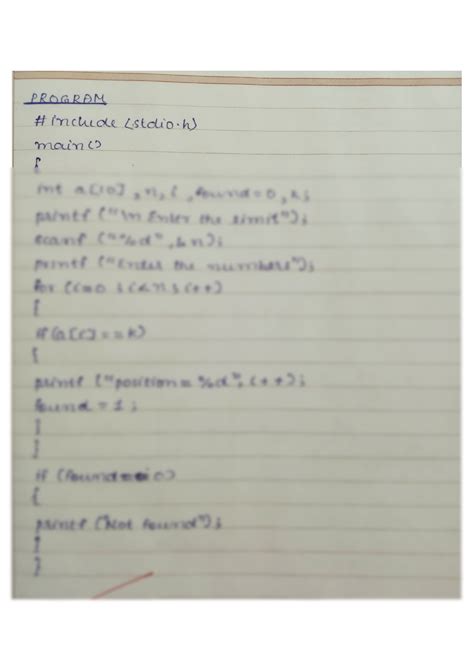 PROGRAM
#include (stdio.h)
main()
{
int a[10], n, i, found=0, k;
printf ("\n Enter the limit");
scanf ("%d", &n);
printf ("Enter the numbers");
for (i=0; i<n; i++)
{
if(a[i]==k)
{
printf ("position = %d", i++);
found = 1;
}
}
if (found== 0)
{
printf ("Not found");
}
}